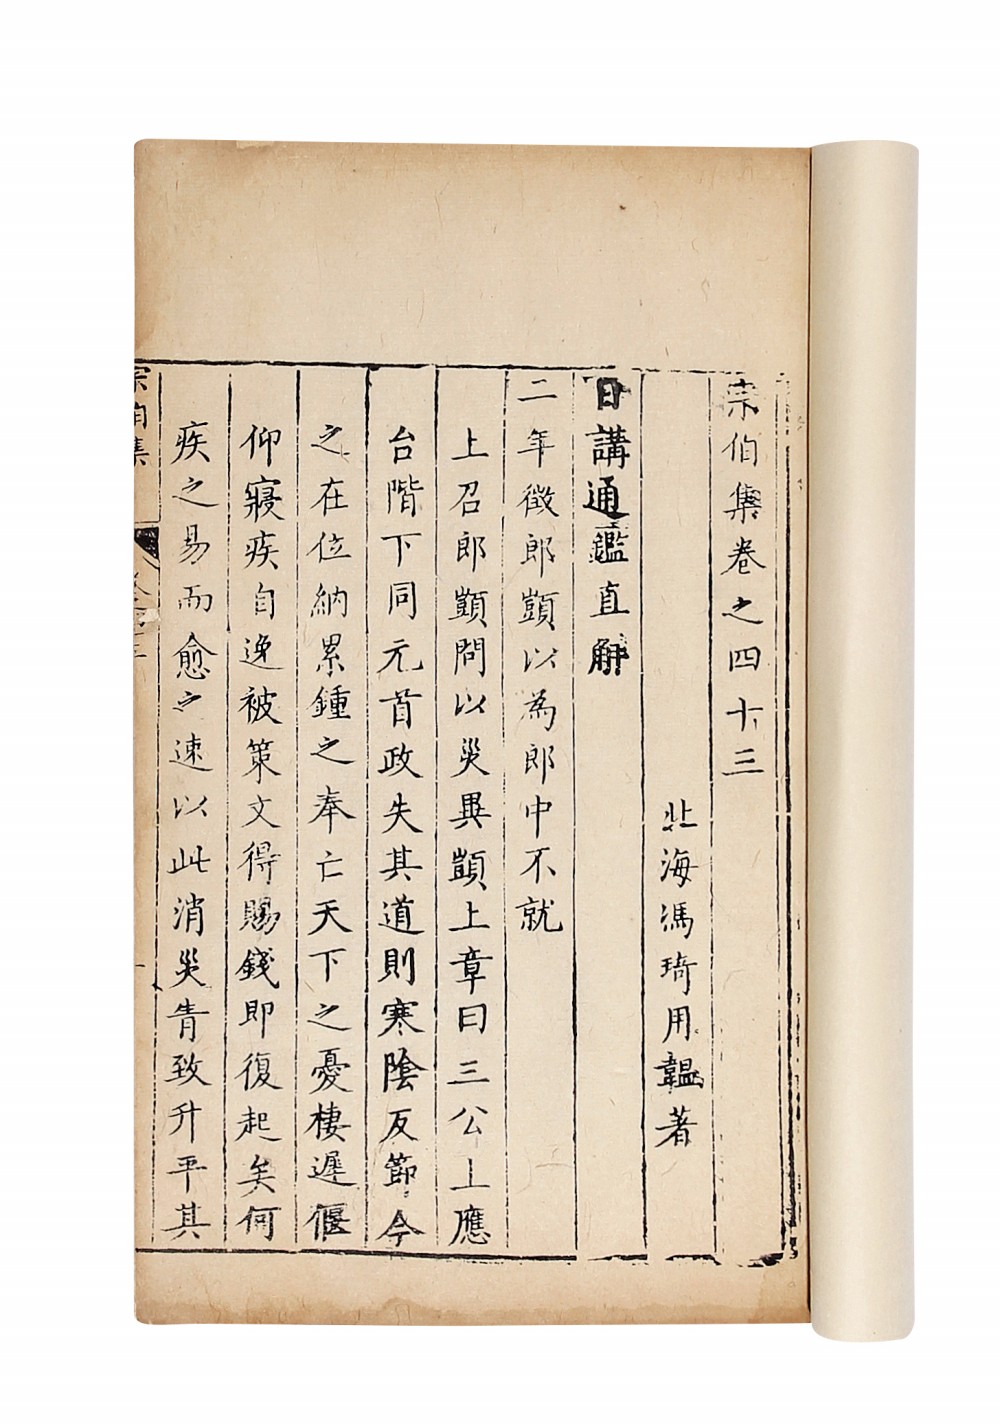 宗伯集卷之四十三
北海馮琦用韞著
日講通鑑直解
二年徵郎顗以為郎中不就
上召郎顗問以災異顗上章曰三公上應
台階下同元首政失其道則寒陰反節今
之在位納累鍾之奉亡天下之憂棲遲偃
仰寢疾自逸被策文得賜錢即復起矣何
疾之易而愈之速以此消災眚致升平其
宗伯集